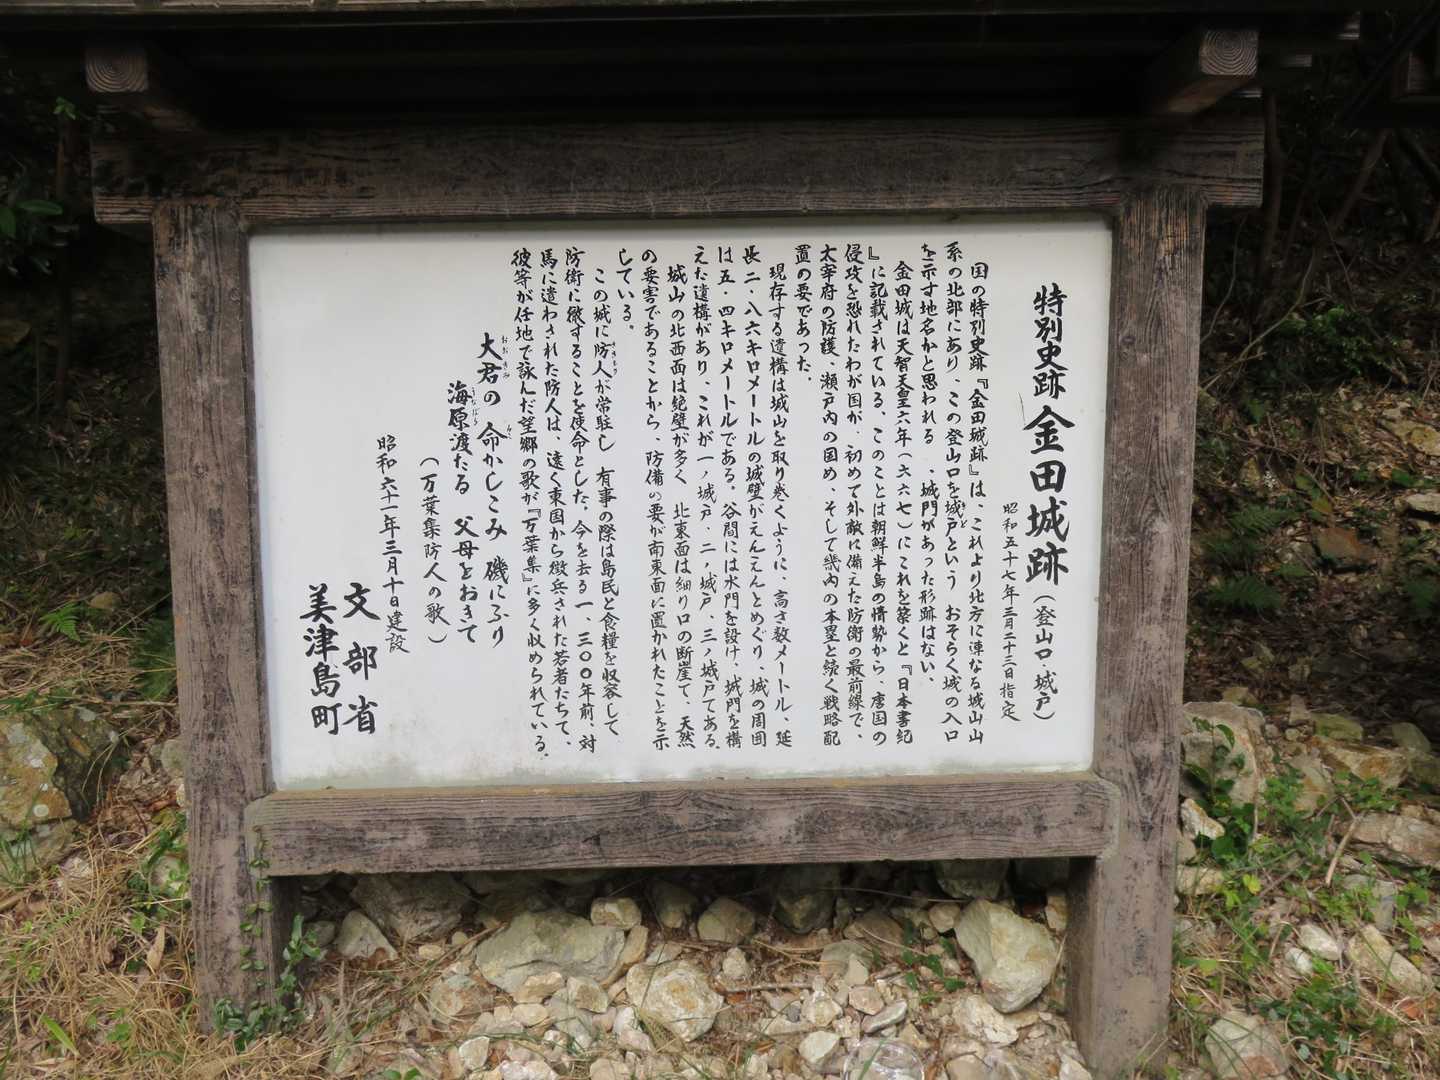 特別史跡 金田城跡（登山口・城戸）
昭和五十七年三月二十三日指定
国の特別史跡『金田城跡』は、これより北方に連なる城山山
系の北部にあり、この登山口を城戸という おそらく城の入口
を示す地名かと思われる 、城門があった形跡はない、
金田城は天智天皇六年（六六七）にこれを築くと『日本書紀
』に記載されている、このことは朝鮮半島の情勢から、唐国の
侵攻を恐れたわが国が、初めて外敵に備えた防衛の最前線で、
太宰府の防護、瀬戸内の固め、そして畿内の本塁と続く戦略配
置の要であった。
現存する遺構は城山を取り巻くように、高さ数メートル、延
長二・八六キロメートルの城壁がえんえんとめぐり、城の周囲
は五・四キロメートルである。谷間には水門を設け、城門を構
えた遺構があり、これが一ノ城戸・二ノ城戸・三ノ城戸である。
城山の北西面は絶壁が多く 北東面は細り口の断崖で、天然
の要害であることから、防備の要が南東面に置かれたことを示
している。
この城に防人が常駐し 有事の際は島民と食糧を収容して
防衛に徹することを使命とした。今を去る一、三〇〇年前、対
馬に遣わされた防人は、遠く東国から徴兵された若者たちで、
彼等が任地で詠んだ望郷の歌が『万葉集』に多く収められている。
大君の 命かしこみ 磯にふり
海原渡たる 父母をおきて
（万葉集防人の歌）
昭和六十一年三月十日建設
文部省
美津島町